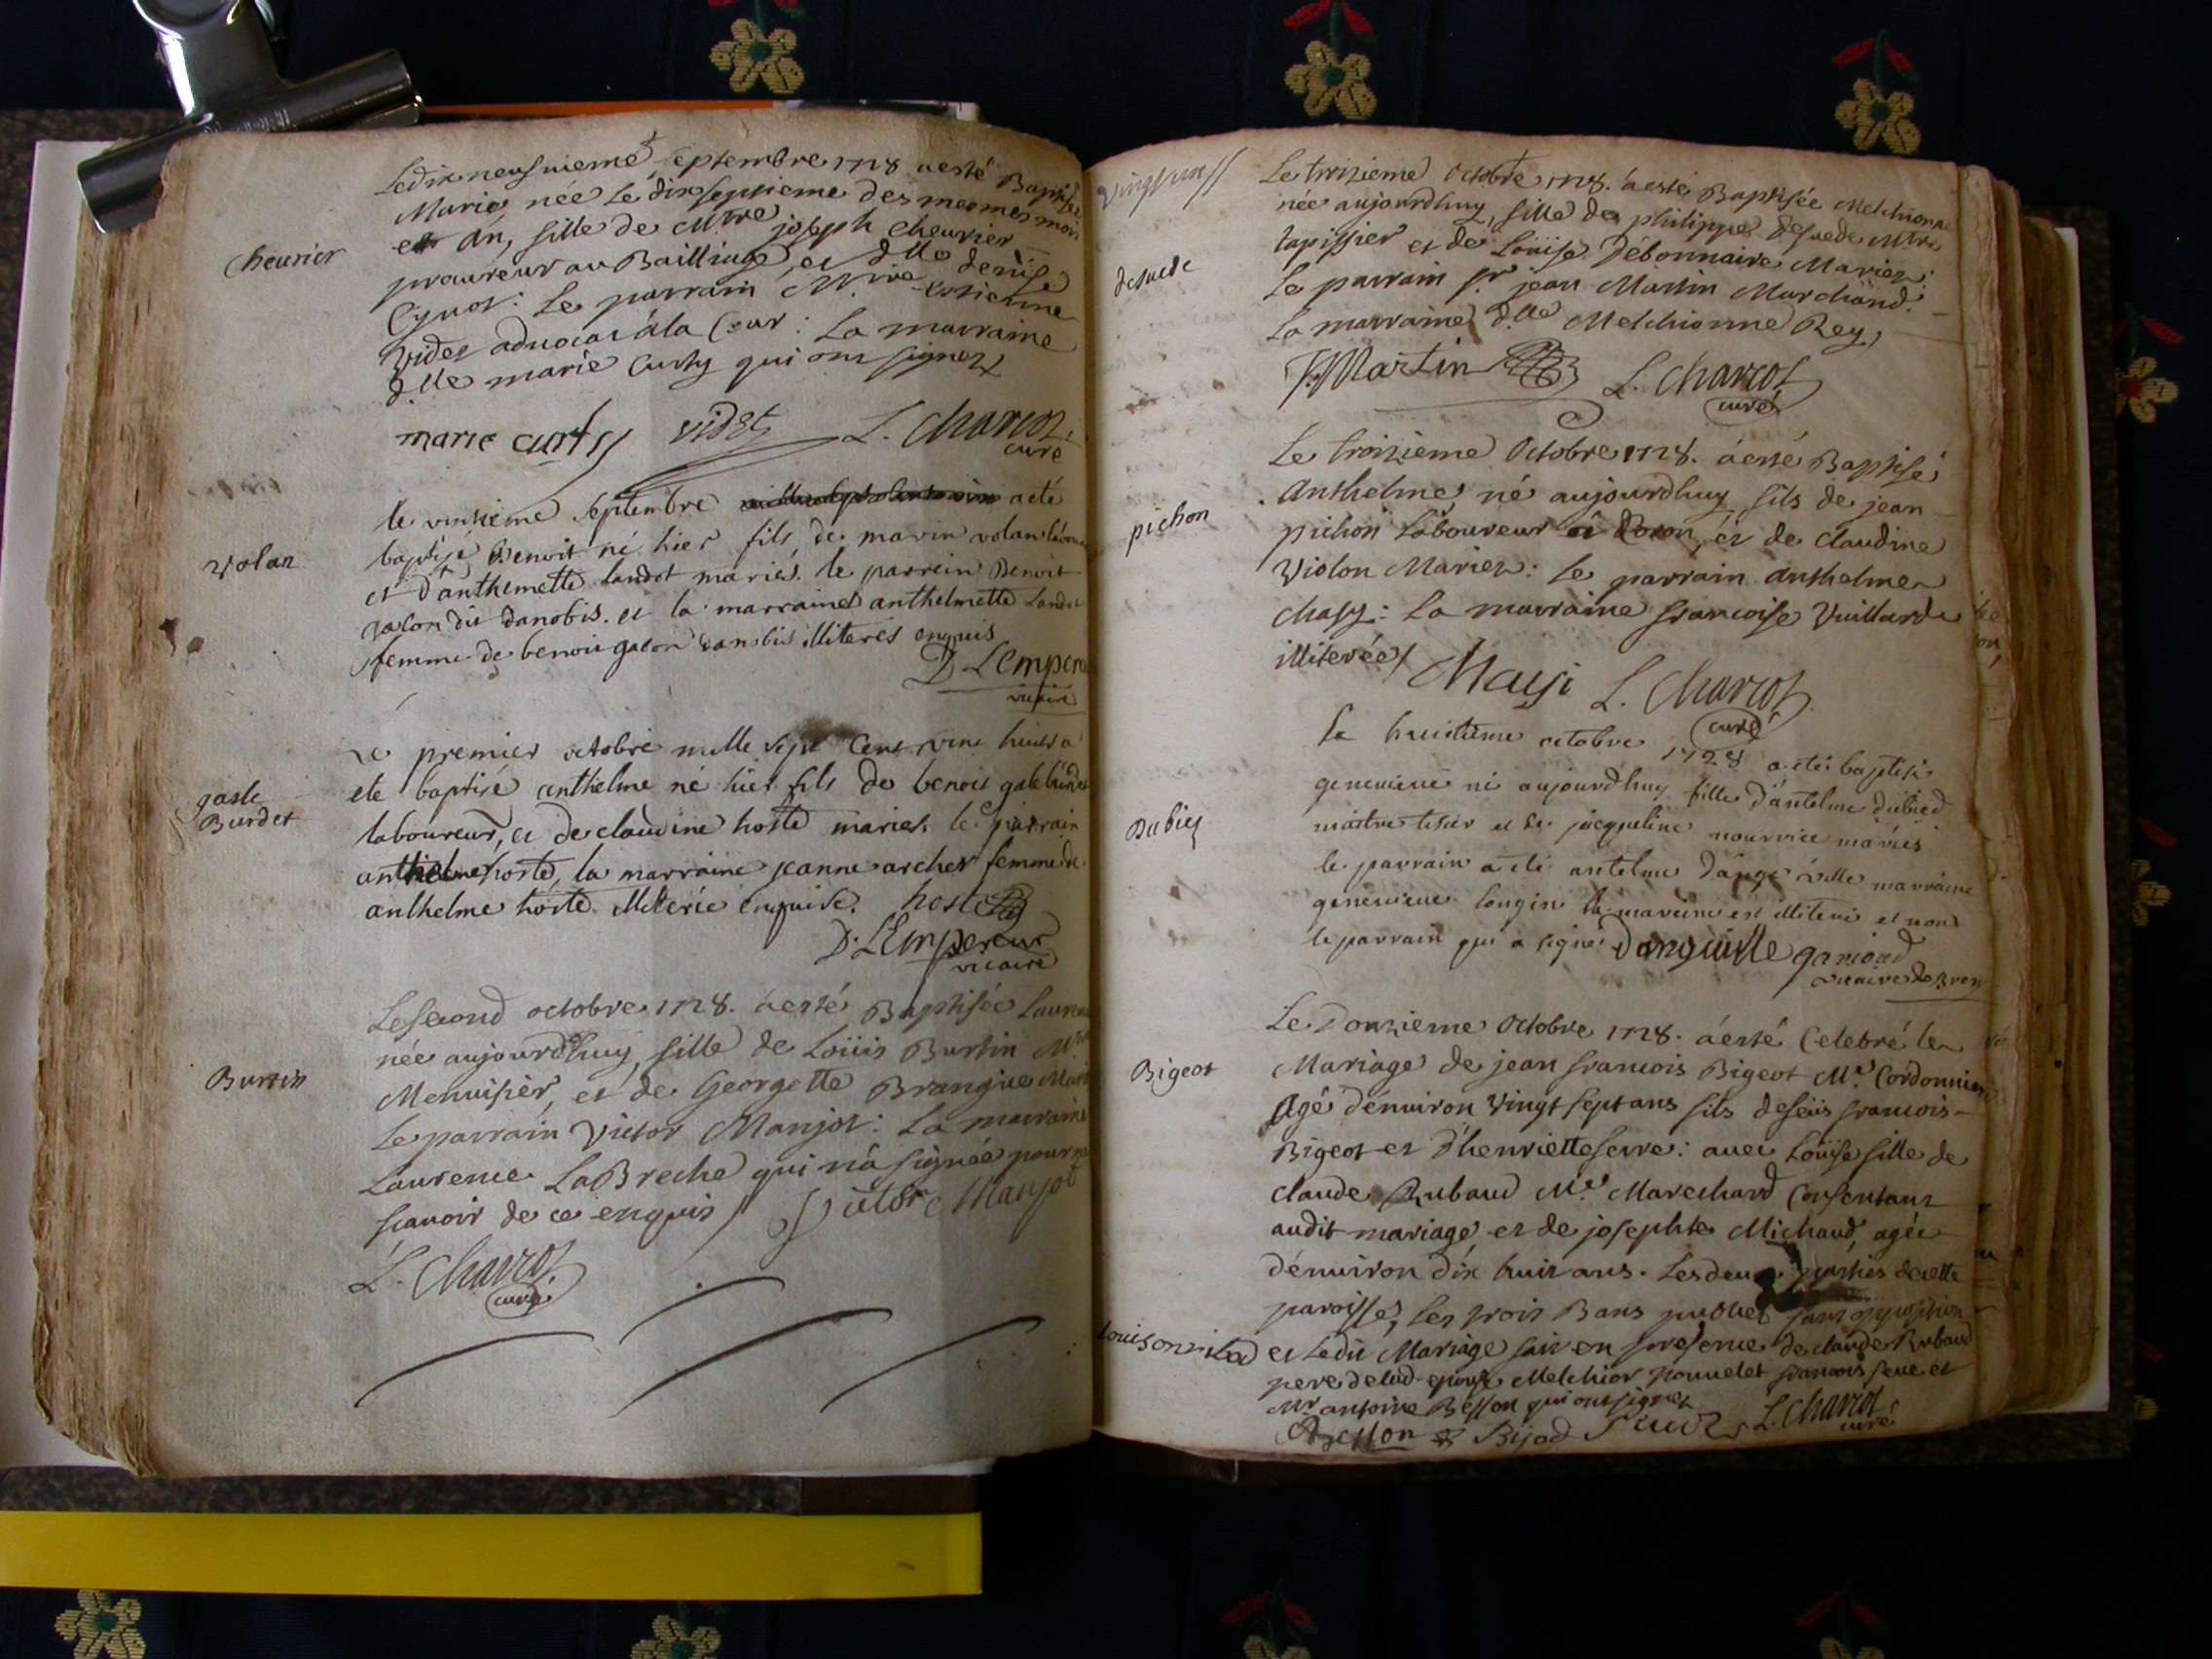 Le dix neufvieme septembre 1728 a esté Baptisée
Marie née Le dixseptieme des mesmes mois
et an, fille de M.tre joseph cheurier
Cheurier
procureur au Bailliage et dlle denise
Cynot: Le parrain M.tre estienne
Videt advocat à la Cour: La marraine
d.lle marie Curty qui ont signez
marie curty videt L. Charcot
curé
le vintieme septembre a eté
Volan
baptisé Benoit né hier fils de marin volan
et d'anthemette landot mariés. le parrein Benoit
galon dit danobis. et la marraine anthelmette Landot
femme de benoit galon danobis illiterés enquis
D Lempere
vicaire
Le premier octobre mille sept Cent vint huict a
gasle
Burdet
ete baptisé anthelme né hier fils de benoit
laboureur, et de claudine hoste mariés. le parrain
anthelme hoste, la marraine jeanne archer femme de
anthelme hoste illiterée enquise. hoste
D. LEmpereur
vicaire
Le second octobre 1728. a esté Baptisée Lauren
née aujourdhuy, fille de Loüis Burtin M
Burtin
Menuisier, et de Georgette Brangue Mari
Le parrain Victor Manjot: La marraine
Laurence LaBreche qui n'a signée pour ne
scavoir de ce enquis Victor Manjot
L. Charcot
curé
Le troisieme Octobre 1728. a esté Baptisée Melchionne
née aujourdhuy, fille de philippe desuede Mtre
desuede
tapissier et de Loüise Débonnaire Mariez:
Le parrain Sr jean Martin Marchand:
La marraine d.lle Melchionne Rey,
J. Martin L. Charcot
curé
Le troisieme Octobre 1728. a esté Baptisé
Anthelme né aujourdhuy fils de jean
pichon
pichon Laboureur et de claudine
Violon Mariez: Le parrain anthelme
Masy: La marraine francoise Vuillarde
illiterée Maysi L. Charcot
curé
Le huictieme octobre 1728 a eté baptisé
genevieve né aujourdhuy fille d'antelme dubied
Dubiez
maitre tisier et de jacqueline nourrice mariés
le parrain a eté antelme danguille marraine
genevieve longin la marraine est illiteré et non
le parrain qui a signé Danguille gariod
vicaire de Bren
Le Douzieme Octobre 1728. a esté Celebré le
Bigeot
Mariage de jean francois Bigeot M.e Cordonnier
Agé d'environ vingt sept ans fils de feüs francois
Bigeot et d'henriette serve: avec Loüise fille de
claude Rubaud M.e Marechard Consentant
audit mariage, et de josephte Michaud, agée
d'environ dix huit ans. Les deux parties de cette
paroisse, Les trois Bans publiez sans opposition
et Ledit Mariage fait en presence de claude Rubaud
pere de lad. epouse Melchior ponnelet francois seve et
Mr antoine Besson qui ont signez
Besson Bijod L. Charcot
curé